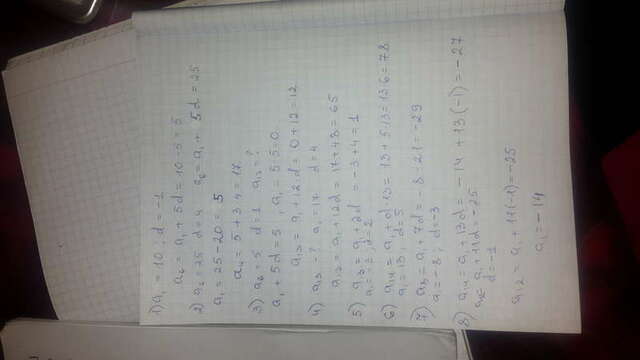 1) a₁ = 10 ; d = -1
a₆ = a₁ + 5d = 10 - 5 = 5
2) a₆ = 25 d = 4 a₆ = a₁ + 5d = 25
a₁ = 25 - 20 = 5
a₄ = 5 + 3·4 = 17
3) a₆ = 5 d = 1 a₁₃ = ?
a₁ + 5d = 5 a₁ = 5 - 5 = 0
a₁₃ = a₁ + 12·d = 0 + 12 = 12
4) a₁₃ - ? a₁ = 17 d = 4
a₁₃ = a₁ + 12d = 17 + 48 = 65
5) a₃ = a₁ + 2d = -3 + 4 = 1
d = 2
6) a₁₄ = a₁ + d·13 = 13 + 5·13 = 13·6 = 78
a₁ = 13 ; d = 5
7) a₈ = a₁ + 7d = -8 - 21 = -29
a₁ = -8 ; d = -3
8) a₁₄ = a₁ + 13d = -14 + 13(-1) = -27
a₁₂ = a₁ + 11d = -25
d = -1
a₁₂ = a₁ + 11(-1) = -25
a₁ = -14